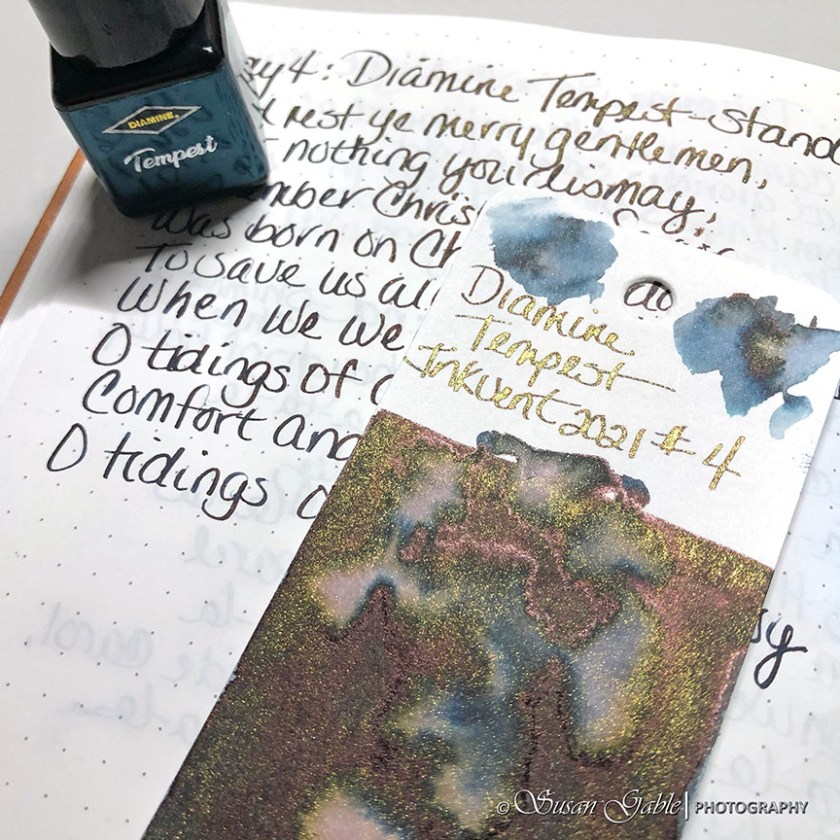 DIAMINE
Tempest
ay 4: Diamine Tempest - Stand
rest ye merry gentlemen,
nothing you dismay,
mber Chris
was born on Ch
To save us al
When we we
O tidings of
Comfort and
O tidings
Diamine
Tempest
Inkvent 2021 #4
ay
© Susan Gable | PHOTOGRAPHY